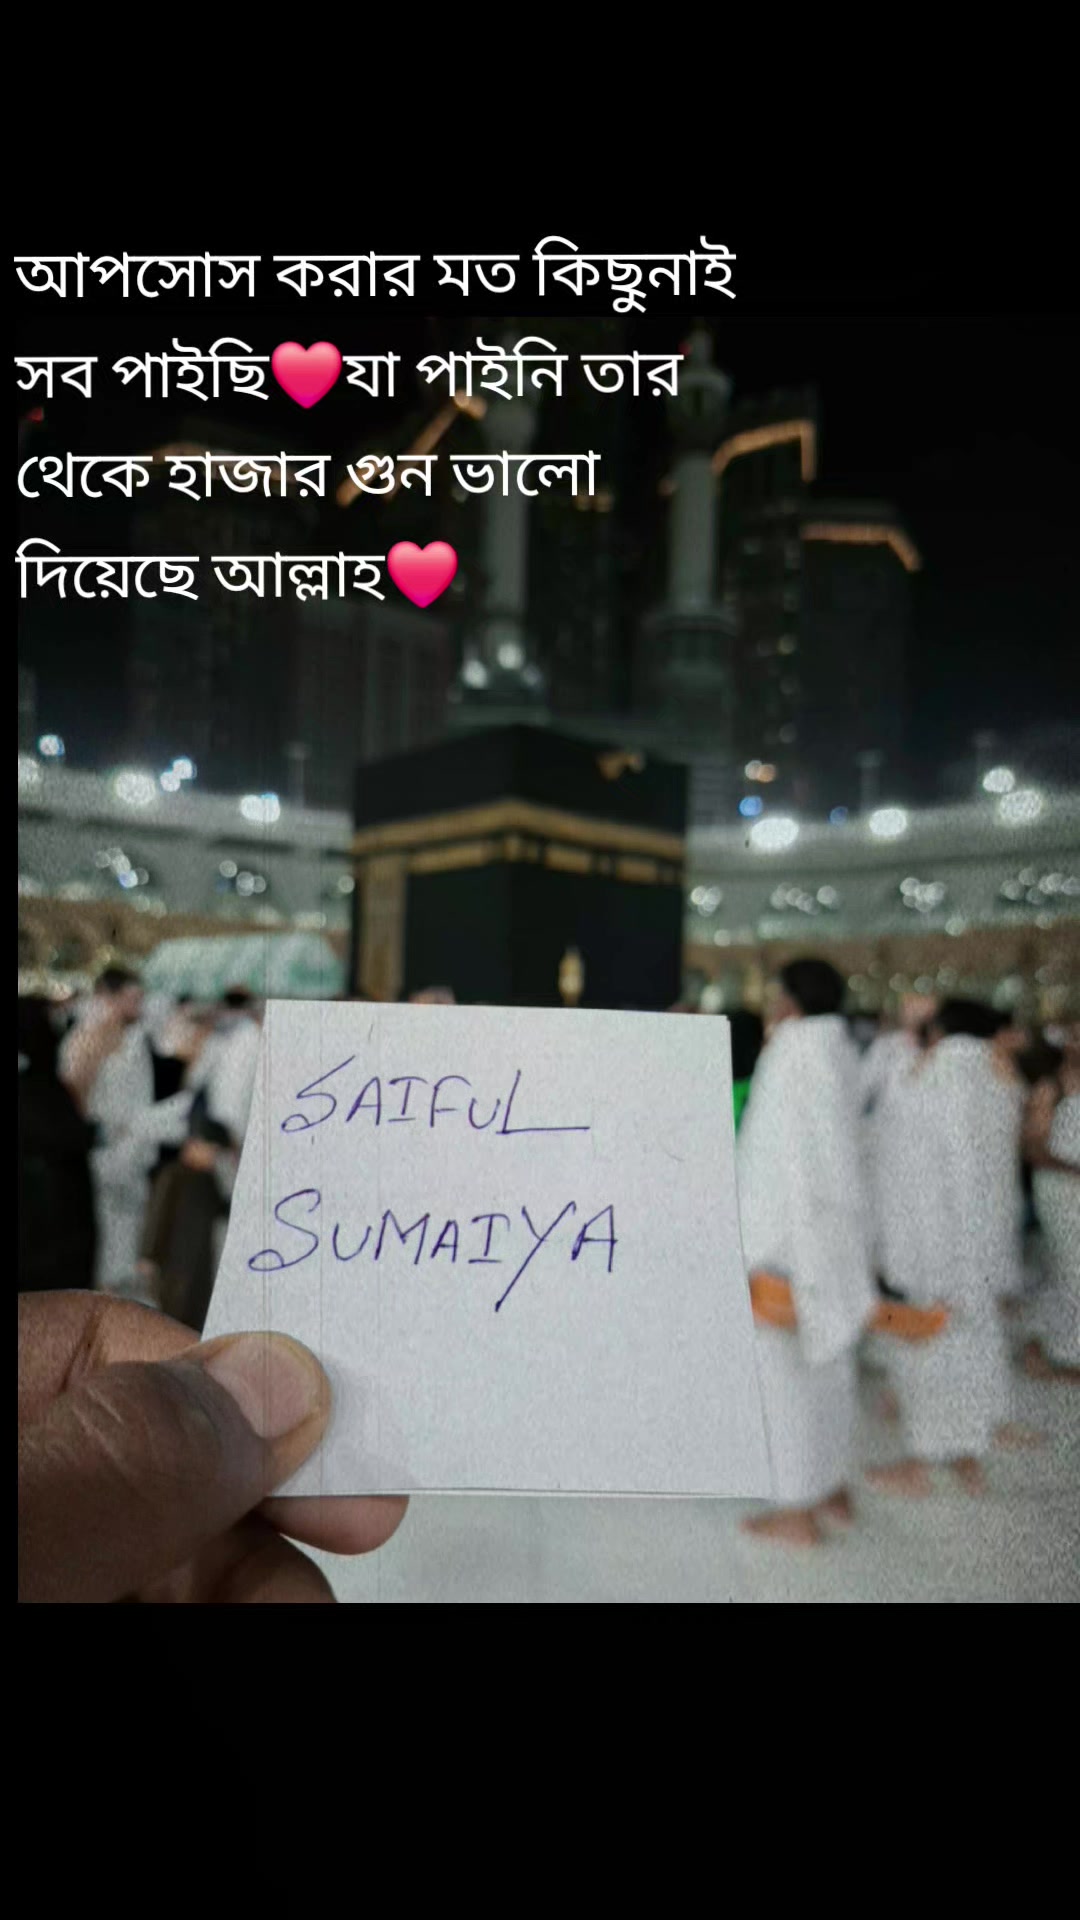 আপসোস করার মত কিছুনাই
সব পাইছি❤️যা পাইনি তার
থেকে হাজার গুন ভালো
দিয়েছে আল্লাহ❤️
SAIFUL
SUMAIYA